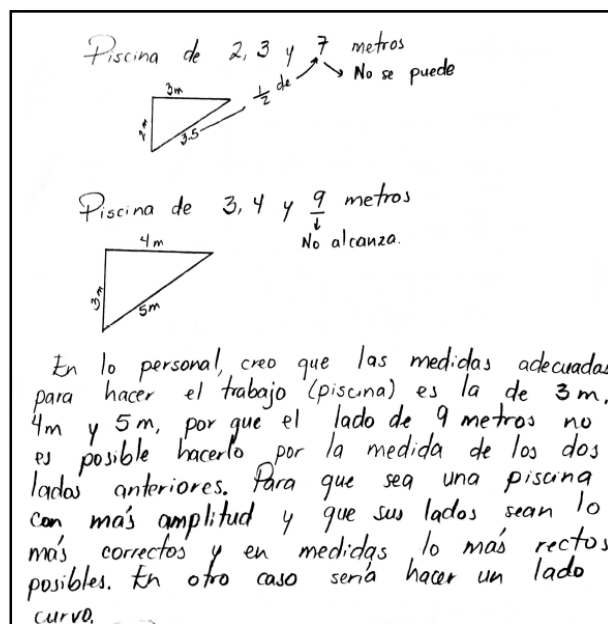 Piscina de 2, 3 y 7 metros
No se puede
3m
1/2 de
2m
3.5
Piscina de 3, 4 y 9 metros
No alcanza.
4m
3m
5m
En lo personal, creo que las medidas adecuadas
para hacer el trabajo (piscina) es la de 3m,
4m y 5m, por que el lado de 9 metros no
es posible hacerlo por la medida de los dos
lados anteriores. Para que sea una piscina
con más amplitud y que sus lados sean lo
más correctos y en medidas lo más rectos
posibles. En otro caso sería hacer un lado
curvo.